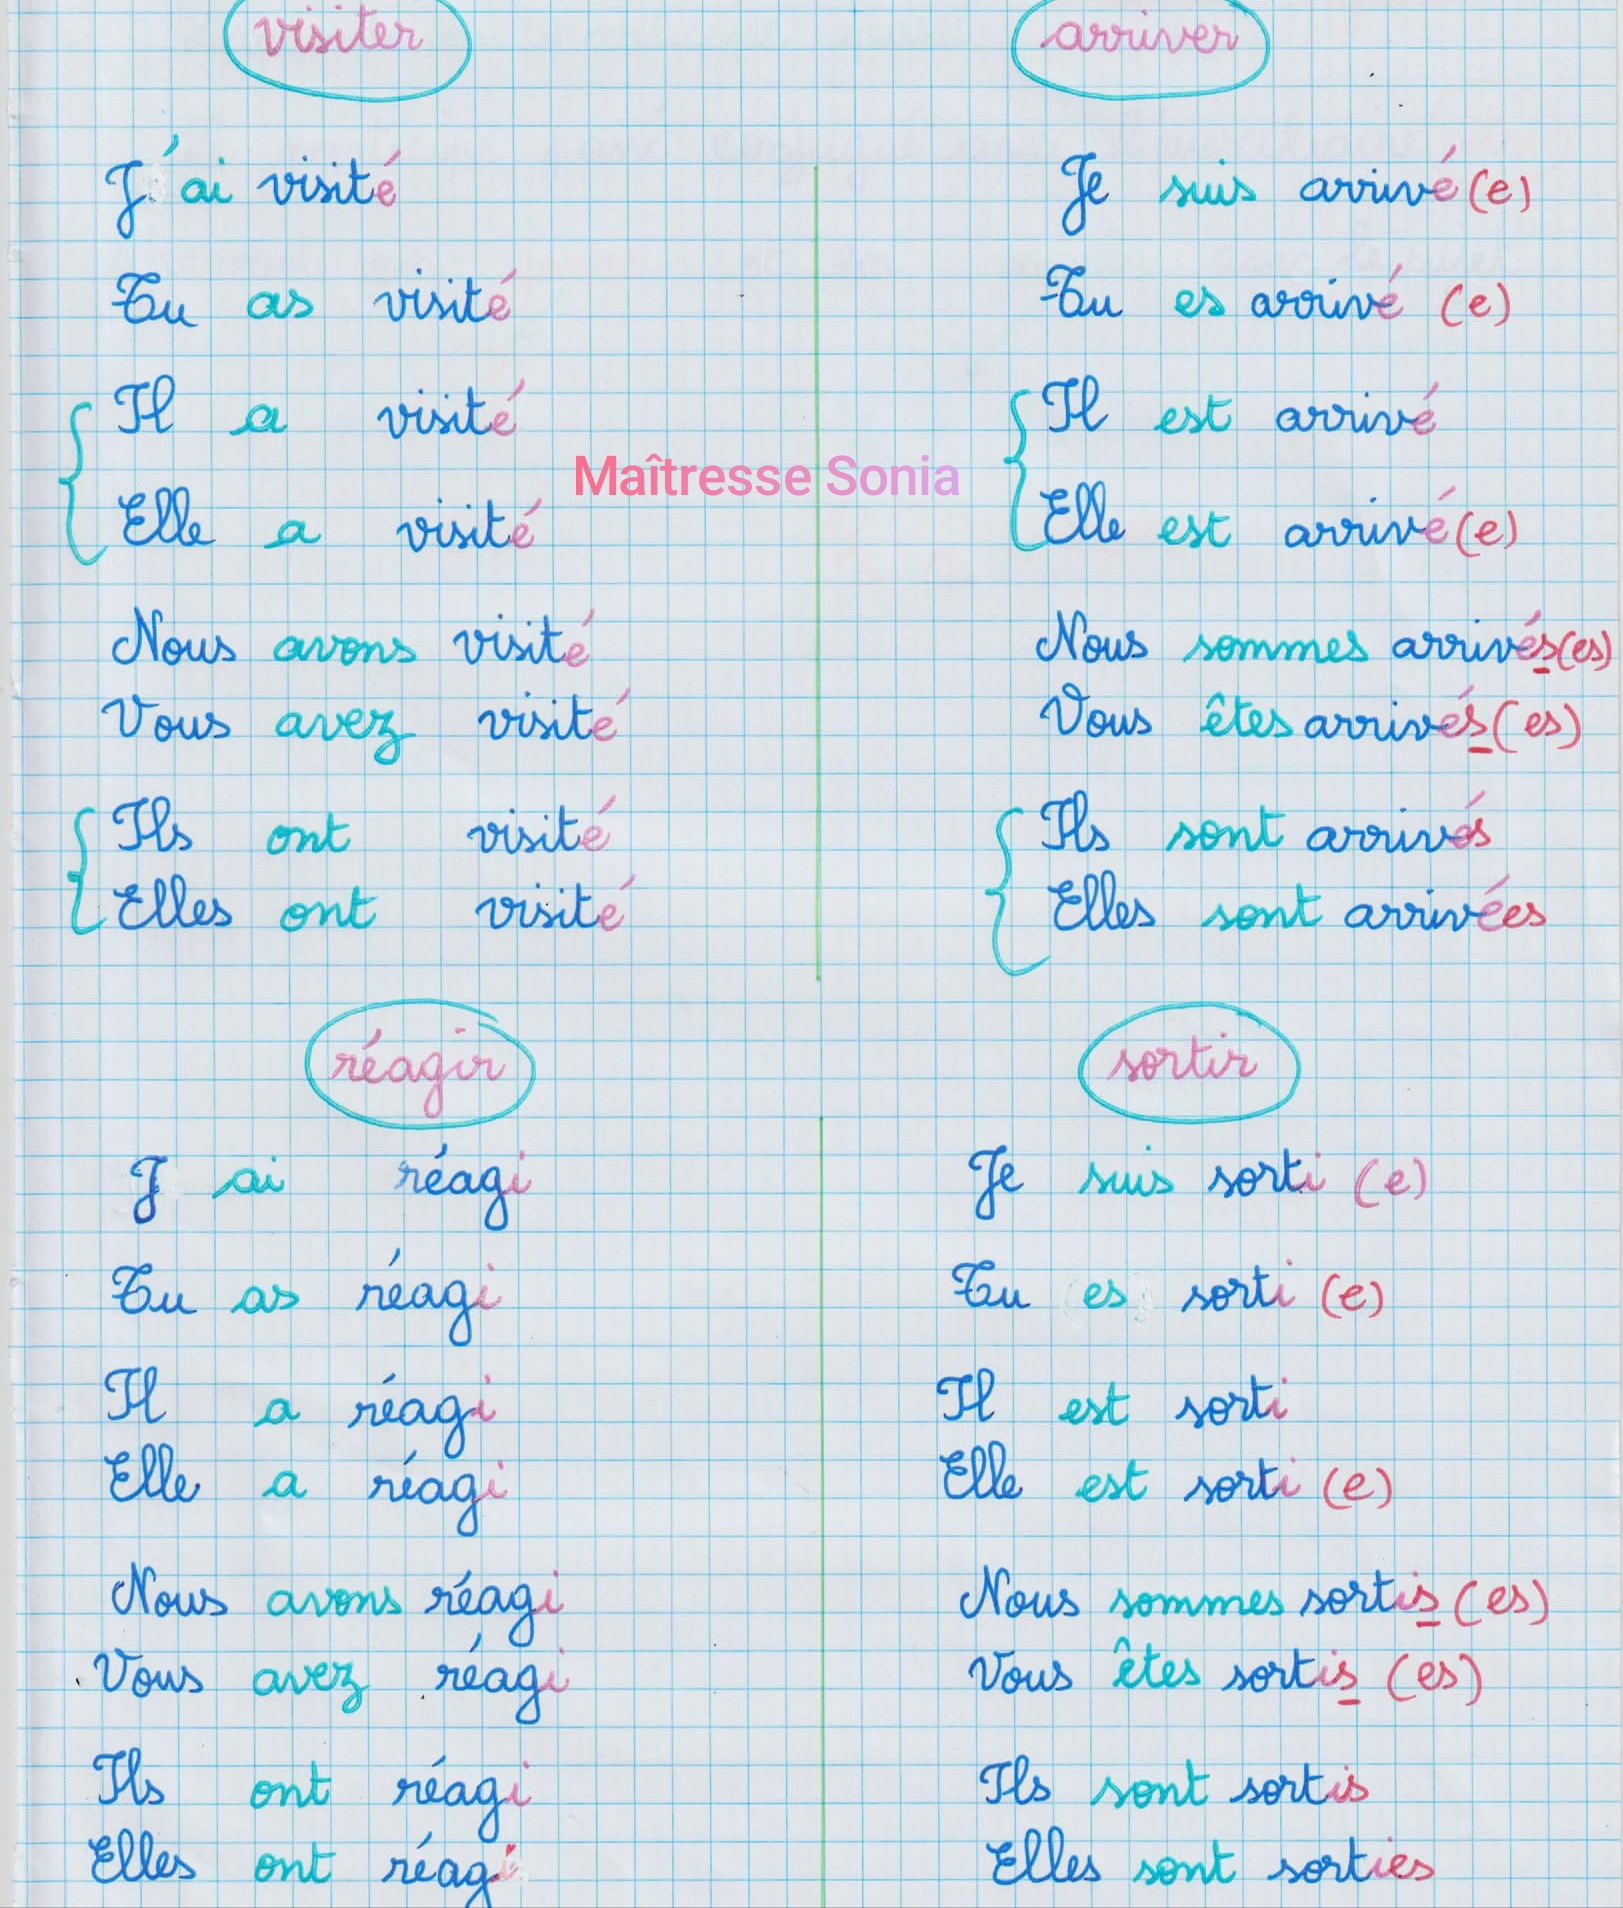 visiter
J'ai visité
Tu as visité
Il a visité
Elle a visité
Nous avons visité
Vous avez visité
Ils ont visité
Elles ont visité
arriver
Je suis arrivé(e)
Tu es arrivé (e)
Il est arrivé
Elle est arrivé(e)
Nous sommes arrivés(es)
Vous êtes arrivés(es)
Ils sont arrivés
Elles sont arrivées
Maîtresse Sonia
réagir
J ai réagi
Tu as réagi
Il a réagi
Elle a réagi
Nous avons réagi
Vous avez réagi
Ils ont réagi
Elles ont réagi
sortir
Je suis sorti (e)
Tu es sorti (e)
Il est sorti
Elle est sorti (e)
Nous sommes sortis (es)
Vous êtes sortis (es)
Ils sont sortis
Elles sont sorties